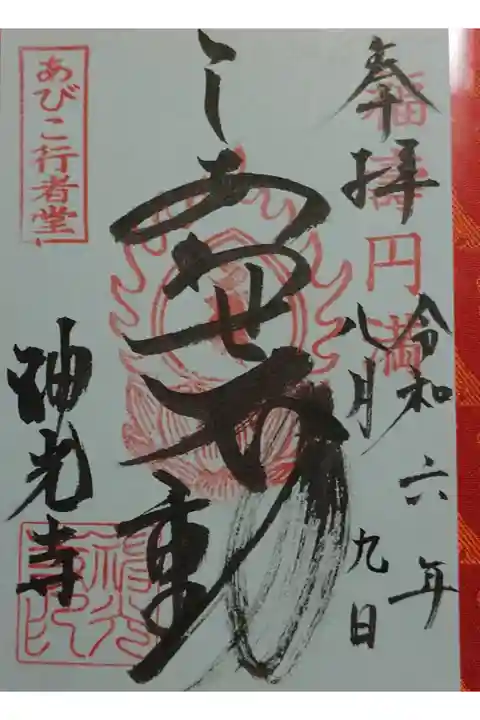 奉拝
福寿円満
令和六年
八月九日
しあわせ不動
あびこ行者堂
神光寺